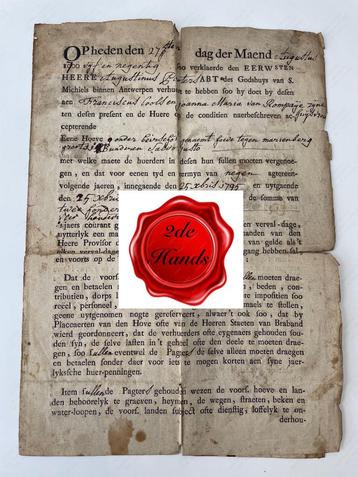 OP heden den 27 sten dag der Maend Augustus
1700 vyf en negentig soo verklaerde den EERWSTEN
HEERE Augustinus ABT des Godshuys van S.
Michiels binnen Antwerpen verhuert te hebben soo hy doet by desen
aen Franciscus Cools en Joanna Maria van
ten desen present en de Huere op de conditien naerbeschreven ac-
cepterende
Eene Hoeve gronden
groot Bunderen
met welke maete de huerders in desen hun sullen moeten vergenoe-
gen, en dat voor eenen tyd en termyn van negen agtereen-
volgende jaeren, innegaende den 25 xbris 1795 en uytgaende
den 25 xbris de somma van
twee
sjaers courant verval-dage,
uytterlyk een handen van den
Heere Provisor van gelde als't
elken verval-dage gang hebben sal,
en voorts op de
2de
Hands
Dat de voorsc. sullen moeten drae-
gen en betaelen beden, con-
tributien, dorps impositien soo
reeel, personeel, maels te stellen,
geene uytgenomen nogte gereserveert, alwaer't ook soo, dat by
Placcaerten van den Hove ofte van de Heeren Staeten van Braband
wierd geordonneert, dat de verhuerders ofte eygenaers gehouden sou-
den syn, de selve lasten in't geheel ofte ten deele te moeten drae-
gen, soo sullen eventwel de Pagters de selve alleen moeten draegen
en betaelen sonder daer voor iets te mogen korten aen syne jaer-
lyksche huer-penningen.
Item sullen de Pagters gehouden wezen de voorf. hoeve en lan-
den behoorelyk te graeven, heymen, de wegen, straeten, beken en
water-loopen, de voorf. landen subject ofte dienstig, loffelyk te on-
derhou-